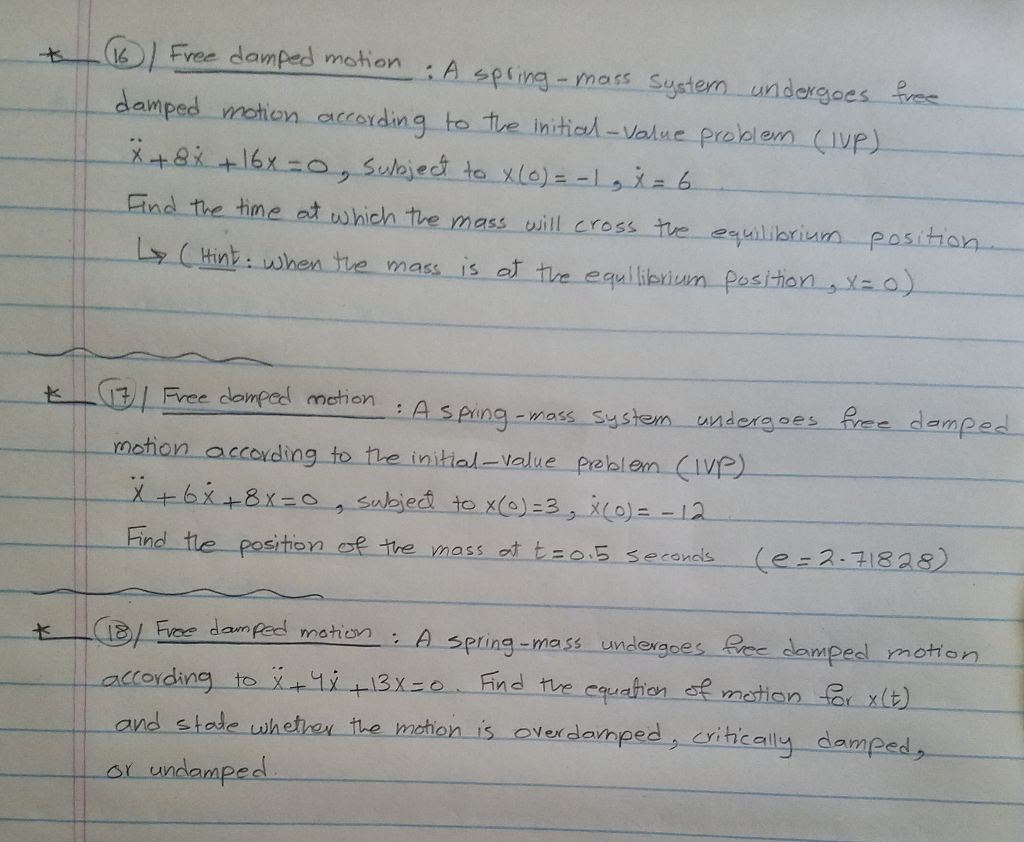 * (16) / Free damped motion : A spring-mass system undergoes free
damped motion according to the initial-value problem (IVP)
ẍ + 8ẋ + 16x = 0, subject to x(0) = -1, ẋ = 6
Find the time at which the mass will cross the equilibrium position.
↳ (Hint: when the mass is at the equilibrium position, x = 0)
* (17) / Free damped motion : A spring-mass system undergoes free damped
motion according to the initial-value problem (IVP)
ẍ + 6ẋ + 8x = 0, subject to x(0) = 3, ẋ(0) = -12
Find the position of the mass at t = 0.5 seconds (e = 2.71828)
* (18) / Free damped motion : A spring-mass undergoes free damped motion
according to ẍ + 4ẋ + 13x = 0. Find the equation of motion for x(t)
and state whether the motion is overdamped, critically damped,
or undamped.